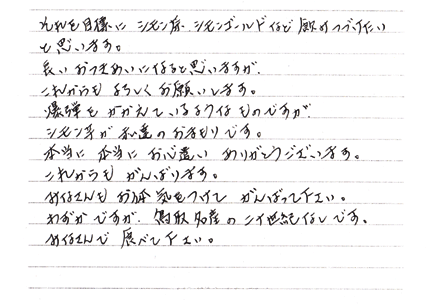 それを目標に シモン茶 シモンゴールドなど 飲みつづけたい
と思います。
長いおつきあいになると思いますが、
これからも よろしく お願いします。
爆弾を かかえている ような ものですが
シモン芋が 私達の お守り です。
本当に 本当に お心遣い ありがとうございます。
これからも がんばります。
みなさんも お体 気をつけて がんばって下さい。
わずかですが、鳥取名産の 二十世紀なしです。
みなさんで 食べて下さい。